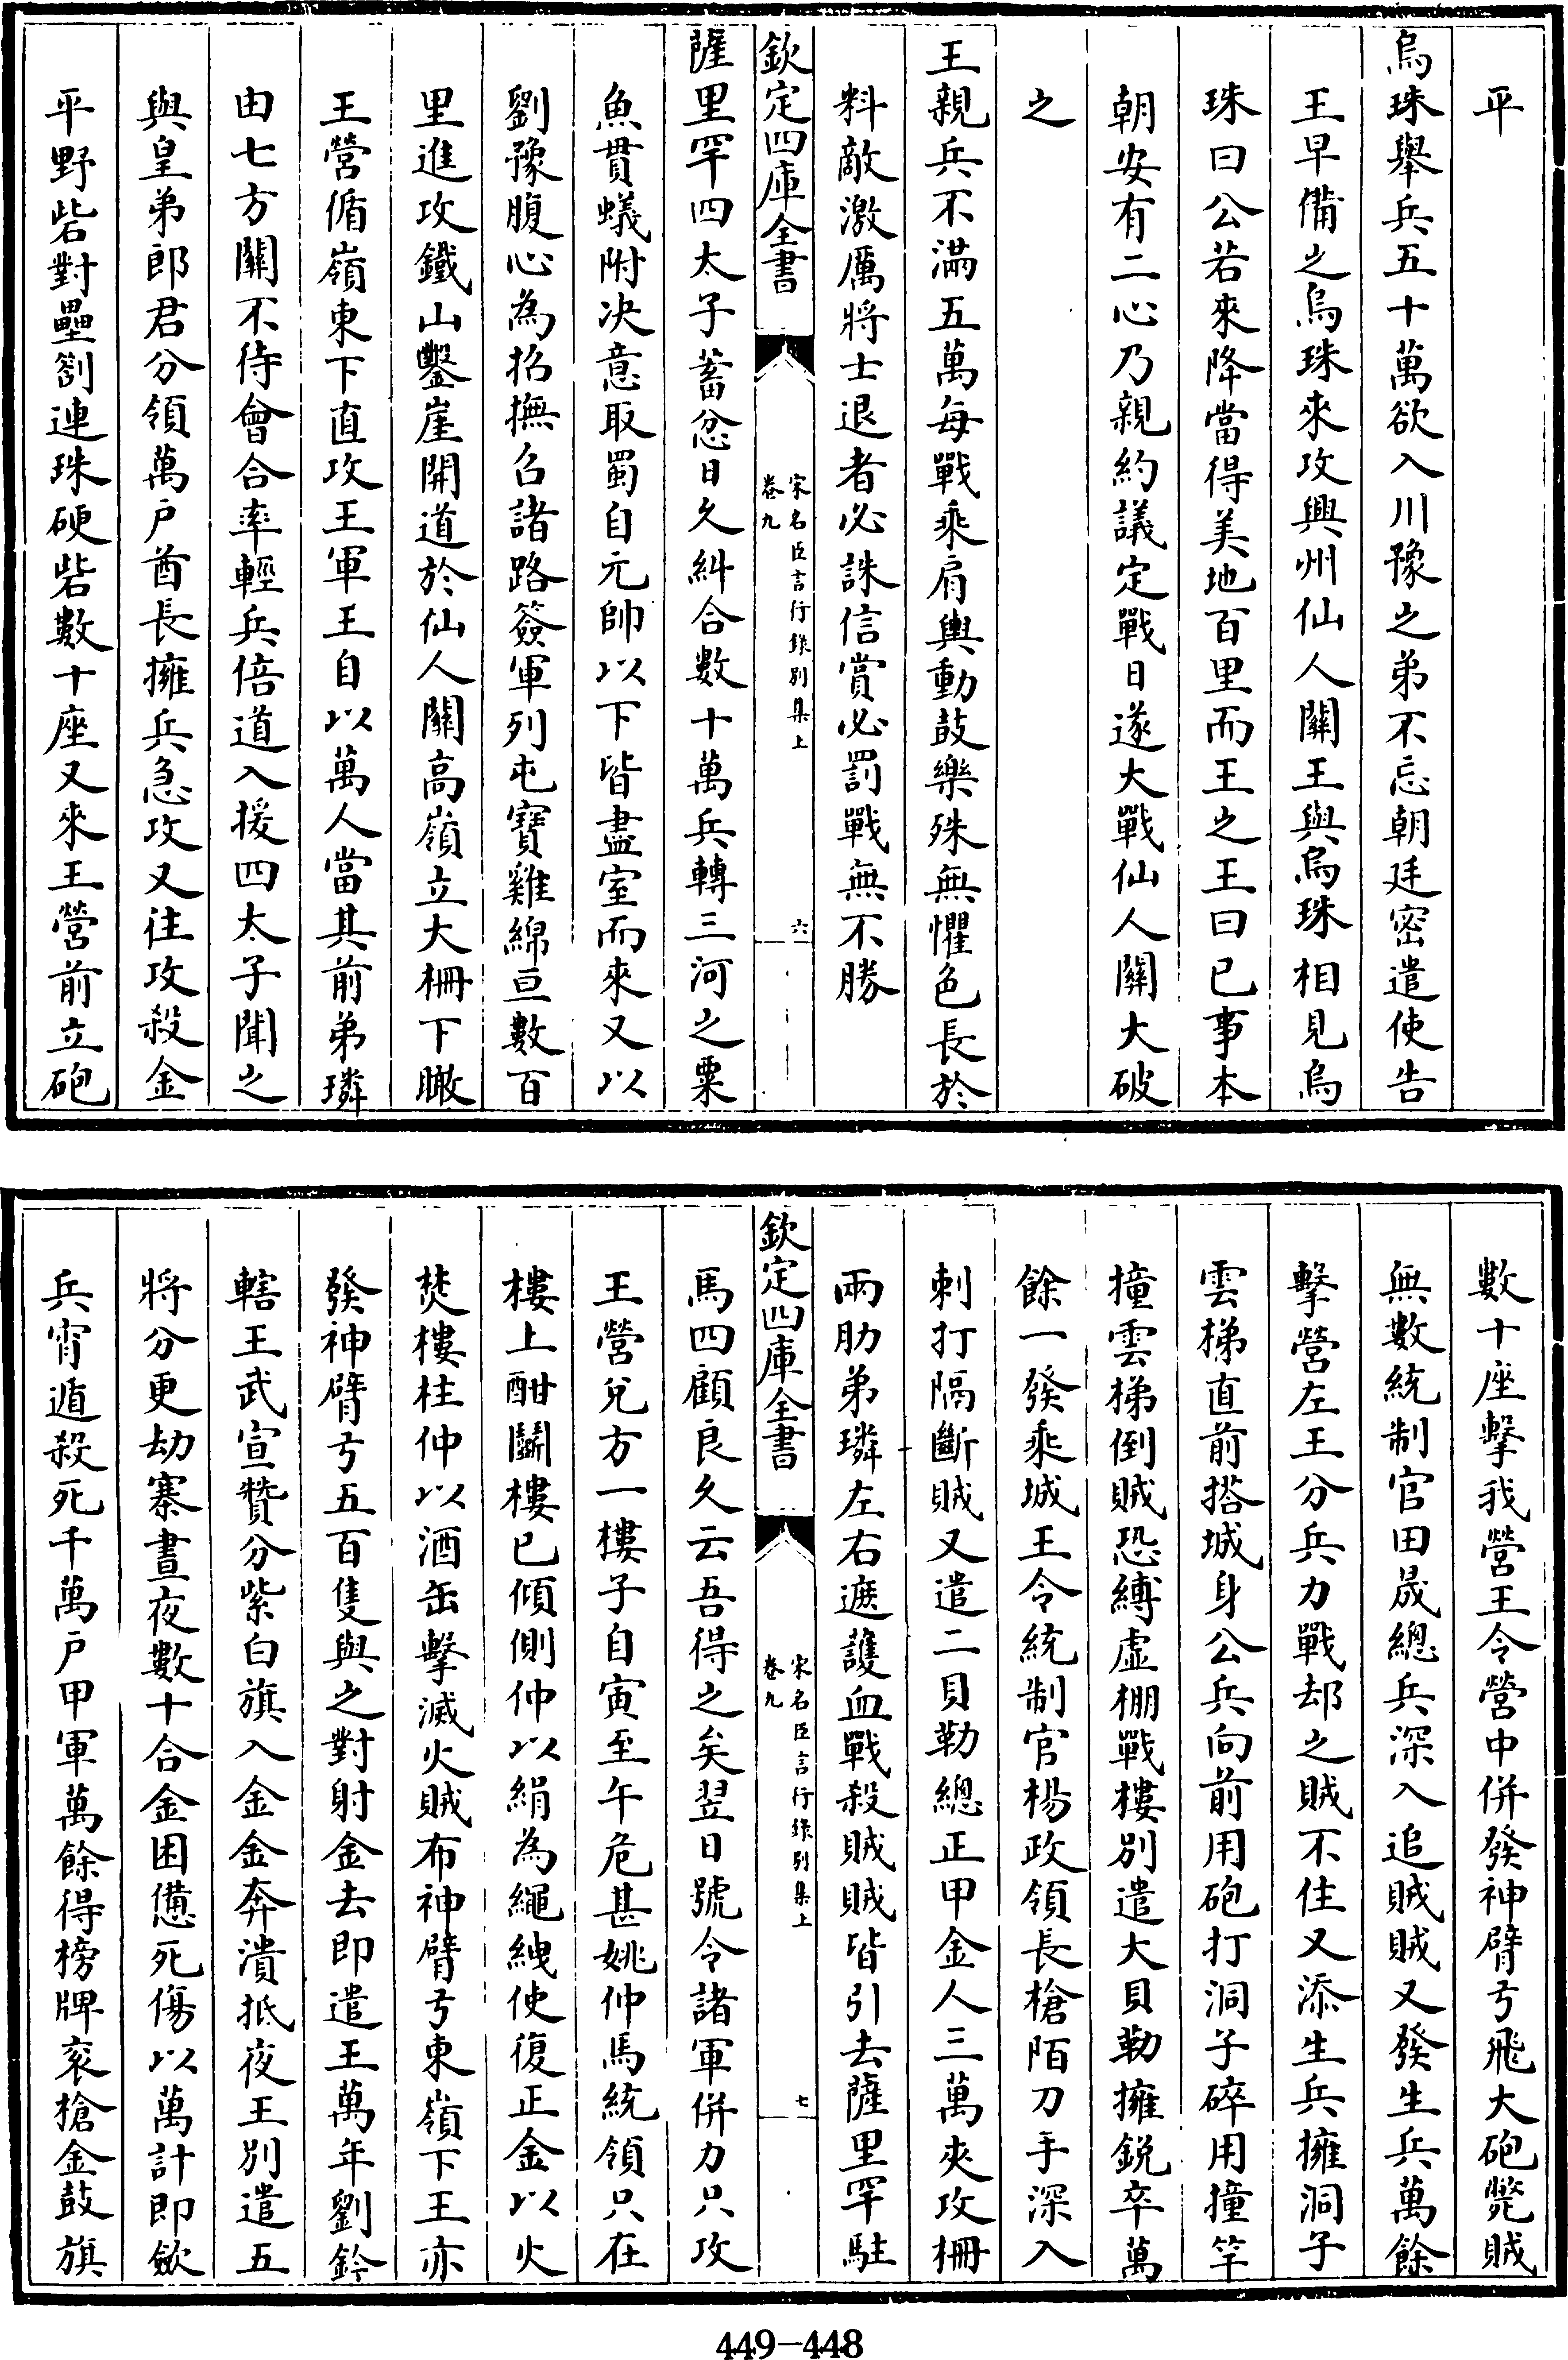 平
烏珠舉兵五十萬欲入川豫之弟不忘朝廷密遣使告
王早備之烏珠來攻興州仙人關王與烏珠相見烏
珠曰公若來降當得美地百里而王之王曰已事本
朝安有二心乃親約議定戰日遂大戰仙人關大破
之
王親兵不滿五萬每戰乘肩輿動鼓樂殊無懼色長於
料敵激厲將士退者必誅信賞必罰戰無不勝
欽定四庫全書
宋名臣言行錄別集上
卷九
六
薩里罕四太子蓄忿日久糾合數十萬兵轉三河之粟
魚貫蟻附决意取蜀自元帥以下皆盡室而來又以
劉豫腹心為招撫召諸路簽軍列屯寶雞綿亘數百
里進攻鐵山鑿崖開道於仙人關高嶺立大柵下瞰
王營循嶺東下直攻王軍王自以萬人當其前弟璘
由七方關不待會合率輕兵倍道入援四太子聞之
與皇弟郎君分領萬户酋長擁兵急攻又往攻殺金
平野砦對壘劄連珠硬砦數十座又來王營前立砲
數十座擊我營王令營中併發神臂弓飛大砲斃賊
無數統制官田晟總兵深入追賊賊又發生兵萬餘
擊營左王分兵力戰却之賊不住又添生兵擁洞子
雲梯直前搭城身公兵向前用砲打洞子碎用撞竿
撞雲梯倒賊恐縛虛棚戰樓別遣大貝勒擁銳卒萬
餘一發乘城王令統制官楊政領長槍陌刀手深入
刺打隔斷賊又遣二貝勒總正甲金人三萬夾攻柵
兩肋弟璘左右遮護血戰殺賊賊皆引去薩里罕駐
欽定四庫全書
宋名臣言行錄別集上
卷九
七
馬四顧良久云吾得之矣翌日號令諸軍併力只攻
王營兌方一樓子自寅至午危甚姚仲馬統領只在
樓上酣鬭樓已傾側仲以絹為繩綫使復正金以火
焚樓柱仲以酒缶擊滅火賊布神臂弓東嶺下王亦
發神臂弓五百隻與之對射金去即遣王萬年劉鈐
轄王武宣贊分紫白旗入金金奔潰抵夜王別遣五
將分更劫寨晝夜數十合金困憊死傷以萬計即斂
兵宵遁殺死千萬户甲軍萬餘得榜牌衮槍金鼓旗
449-448